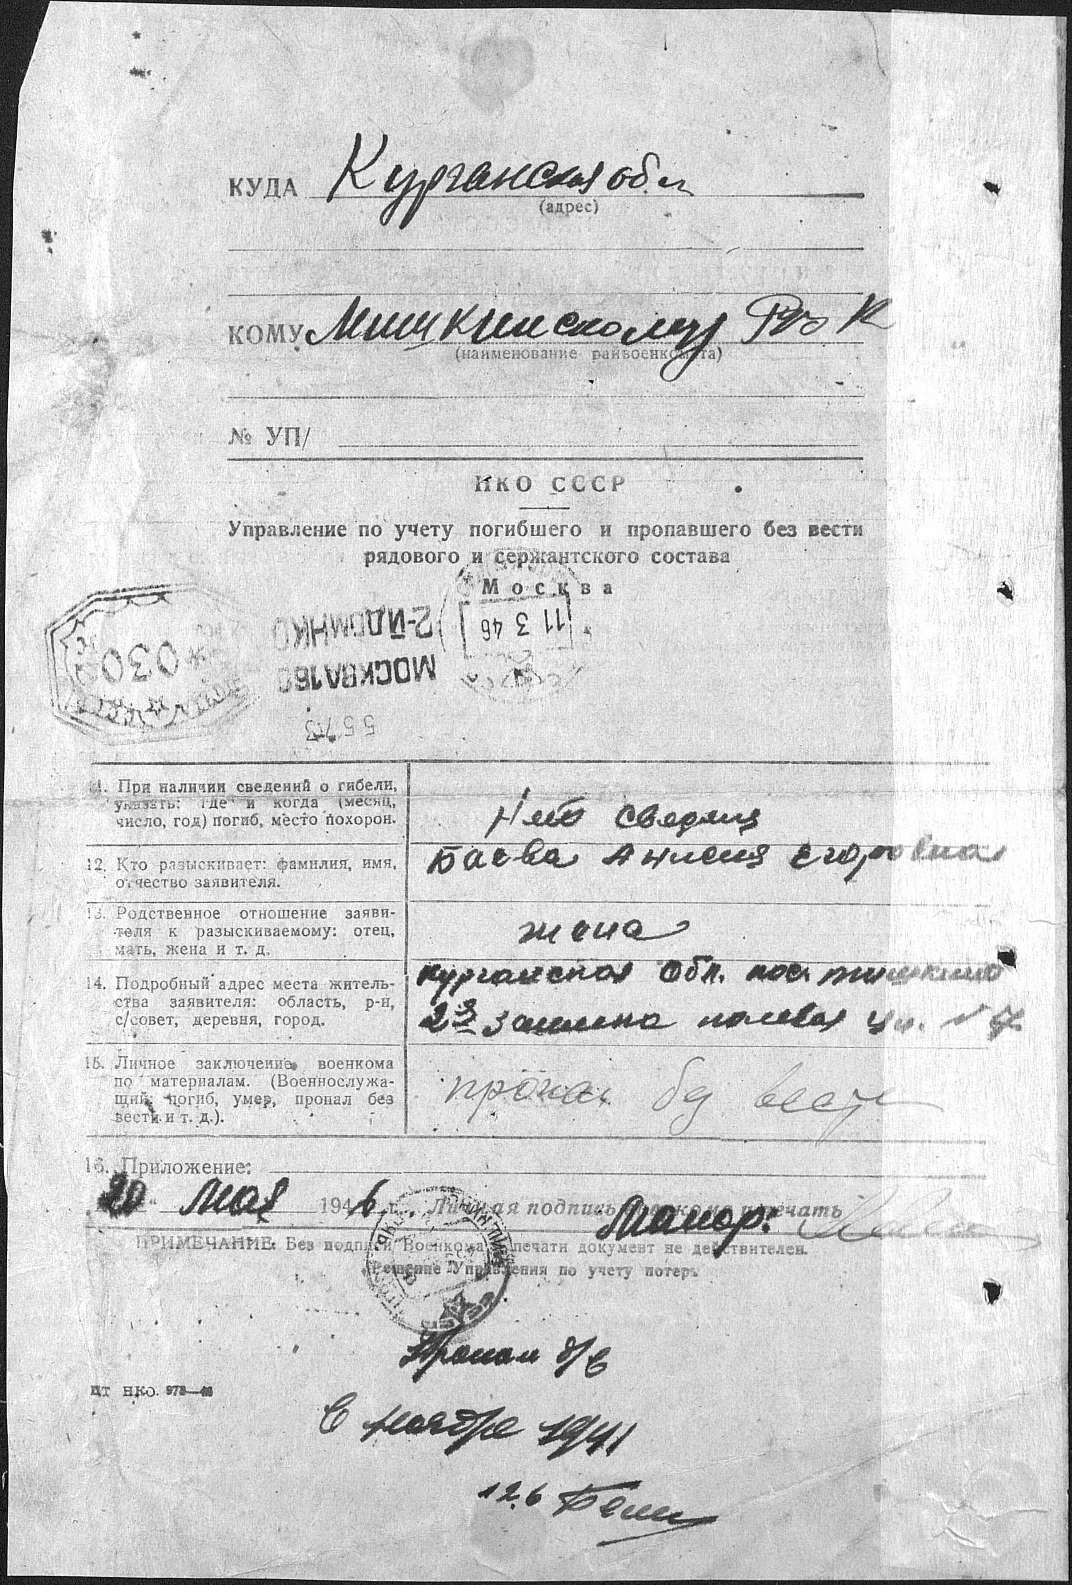 КУДА Курганская обл
(адрес)
КОМУ Мишкинскому РВК
(наименование райвоенкомата)
№ УП/
НКО СССР
Управление по учету погибшего и пропавшего без вести
рядового и сержантского состава
Москва
11 3 46
2-Й ДОМ НКО
МОСКВА 160
030
5573
11. При наличии сведений о гибели,
указать: где и когда (месяц,
число, год) погиб, место похорон.
Нет сведениц
12. Кто разыскивает: фамилия, имя,
отчество заявителя.
Баева Анисия Егоровна
13. Родственное отношение заяви-
теля к разыскиваемому: отец,
мать, жена и т. д.
жена
14. Подробный адрес места житель-
ства заявителя: область, р-н,
с/совет, деревня, город.
Курганская обл. пос. Мишкино
полевая ул. № 7
15. Личное заключение военкома
по материалам. (Военнослужа-
щий: погиб, умер, пропал без
вести и т. д.).
пропал без вести
16. Приложение:
20 " мая 1946 г. Личная подпись военкома и печать
Майор:
ПРИМЕЧАНИЕ: Без подписи Военкома и печати документ не действителен.
Решение Управления по учету потерь
Пропал б/в
в ноябре 1941
12.6
ЦТ НКО. 973—46